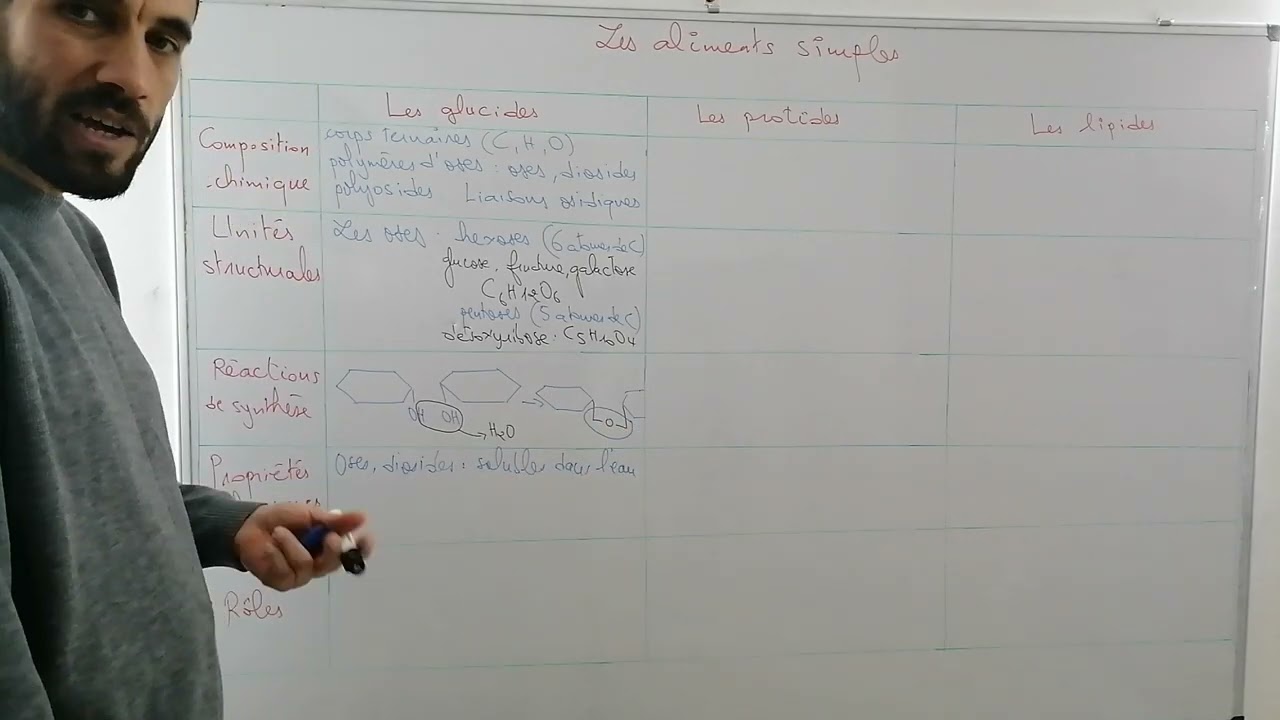 Les aliments simples
Les glucides
Les protides
Les lipides
Composition
chimique
corps ternaires (C, H, O)
polymères d'oses : oses, diosides
polyosides Liaisons osidiques
Unités
structurales
Les oses : hexoses (6 atomes de C)
glucose, fructose, galactose
C6H12O6
pentoses (5 atomes de C)
désoxyribose : C5H10O4
Réactions
de synthèse
OH OH → O
→ H2O
Propriétés
Oses, diosides : solubles dans l'eau
Rôles